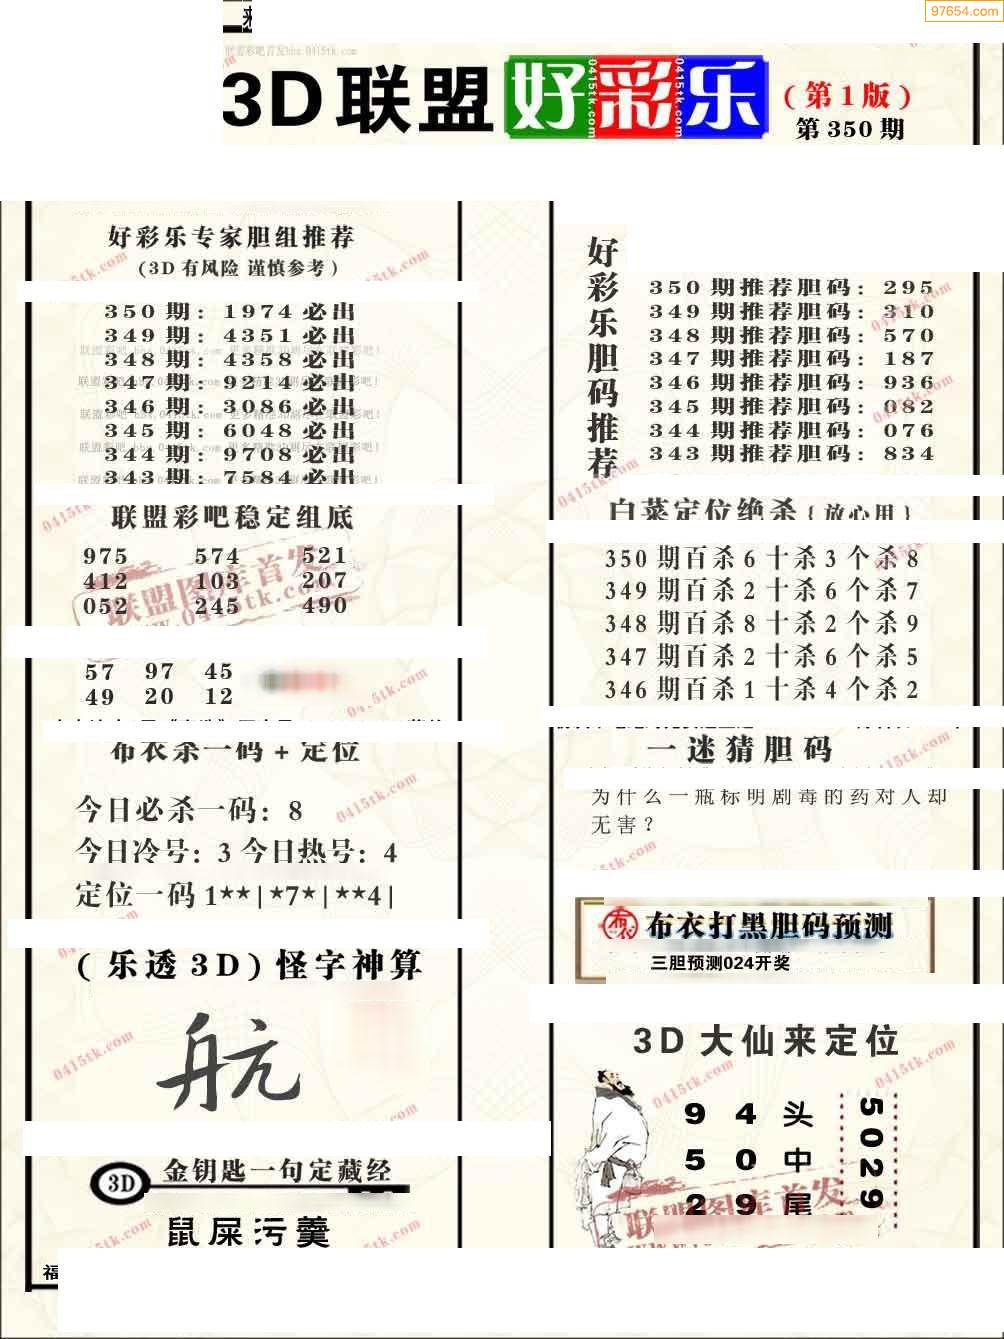 97654.com
3D联盟好彩乐
(第1版)
第350期
好彩乐专家胆组推荐
(3D有风险 谨慎参考)
350期: 1974必出
349期: 4351必出
348期: 4358必出
347期: 9214必出
346期: 3086必出
345期: 6048必出
344期: 9708必出
343期: 7584必出
联盟彩吧稳定组底
975 574 521
412 103 207
052 245 490
57 97 45
49 20 12
布衣杀一码+定位
今日必杀一码: 8
今日冷号: 3 今日热号: 4
定位一码 1**|*7*|**4|
(乐透3D)怪字神算
航
3D
金钥匙一句定藏经
鼠屎污羹
福
好彩乐胆码推荐
350期推荐胆码: 295
349期推荐胆码: 310
348期推荐胆码: 570
347期推荐胆码: 187
346期推荐胆码: 936
345期推荐胆码: 082
344期推荐胆码: 076
343期推荐胆码: 834
白菜定位绝杀{放心用}
350期百杀6十杀3个杀8
349期百杀2十杀6个杀7
348期百杀8十杀2个杀9
347期百杀2十杀6个杀5
346期百杀1十杀4个杀2
一迷猜胆码
为什么一瓶标明剧毒的药对人却
无害?
布衣
布衣打黑胆码预测
三胆预测024开奖
3D大仙来定位
9 4 头
5 0 中
2 9 尾
5029
联盟图库首发
0415tk.com